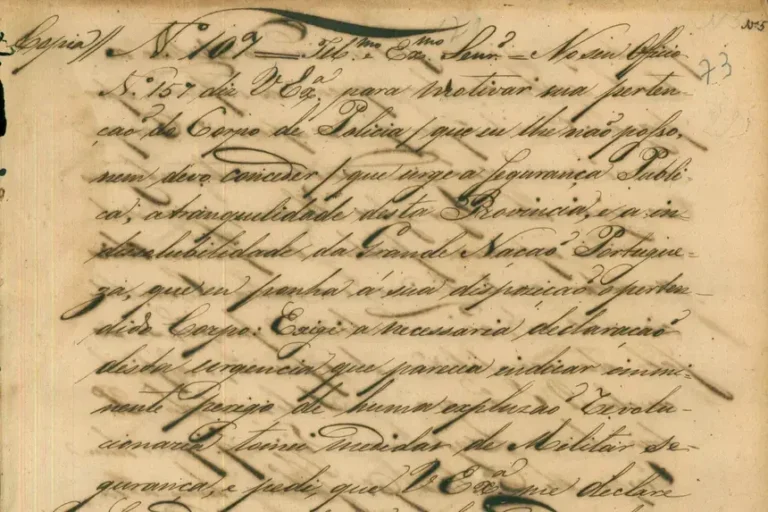 Copia// N.º 107 = Ill.mo e Ex.mo Senr.º = No seu Officio
N.º 5
73
N.º 157, diz V Ex.ª para motivar sua perten-
ção do Corpo de Policia / que eu lhe não posso,
nem devo conceder / que urge a Segurança Publi-
ca, a tranquilidade desta Provincia, e a in-
dissolubilidade da Grande Nação Portugue-
za, que eu ponha á sua dispozição o perten-
dido Corpo: Exigi a necessaria declaração
desta urgencia que parecia indicar immi-
nente perigo de huma expluzão Revolu-
cionaria tomei medidas de Militar se-
gurança, e pedi, que V Ex.ª me declare